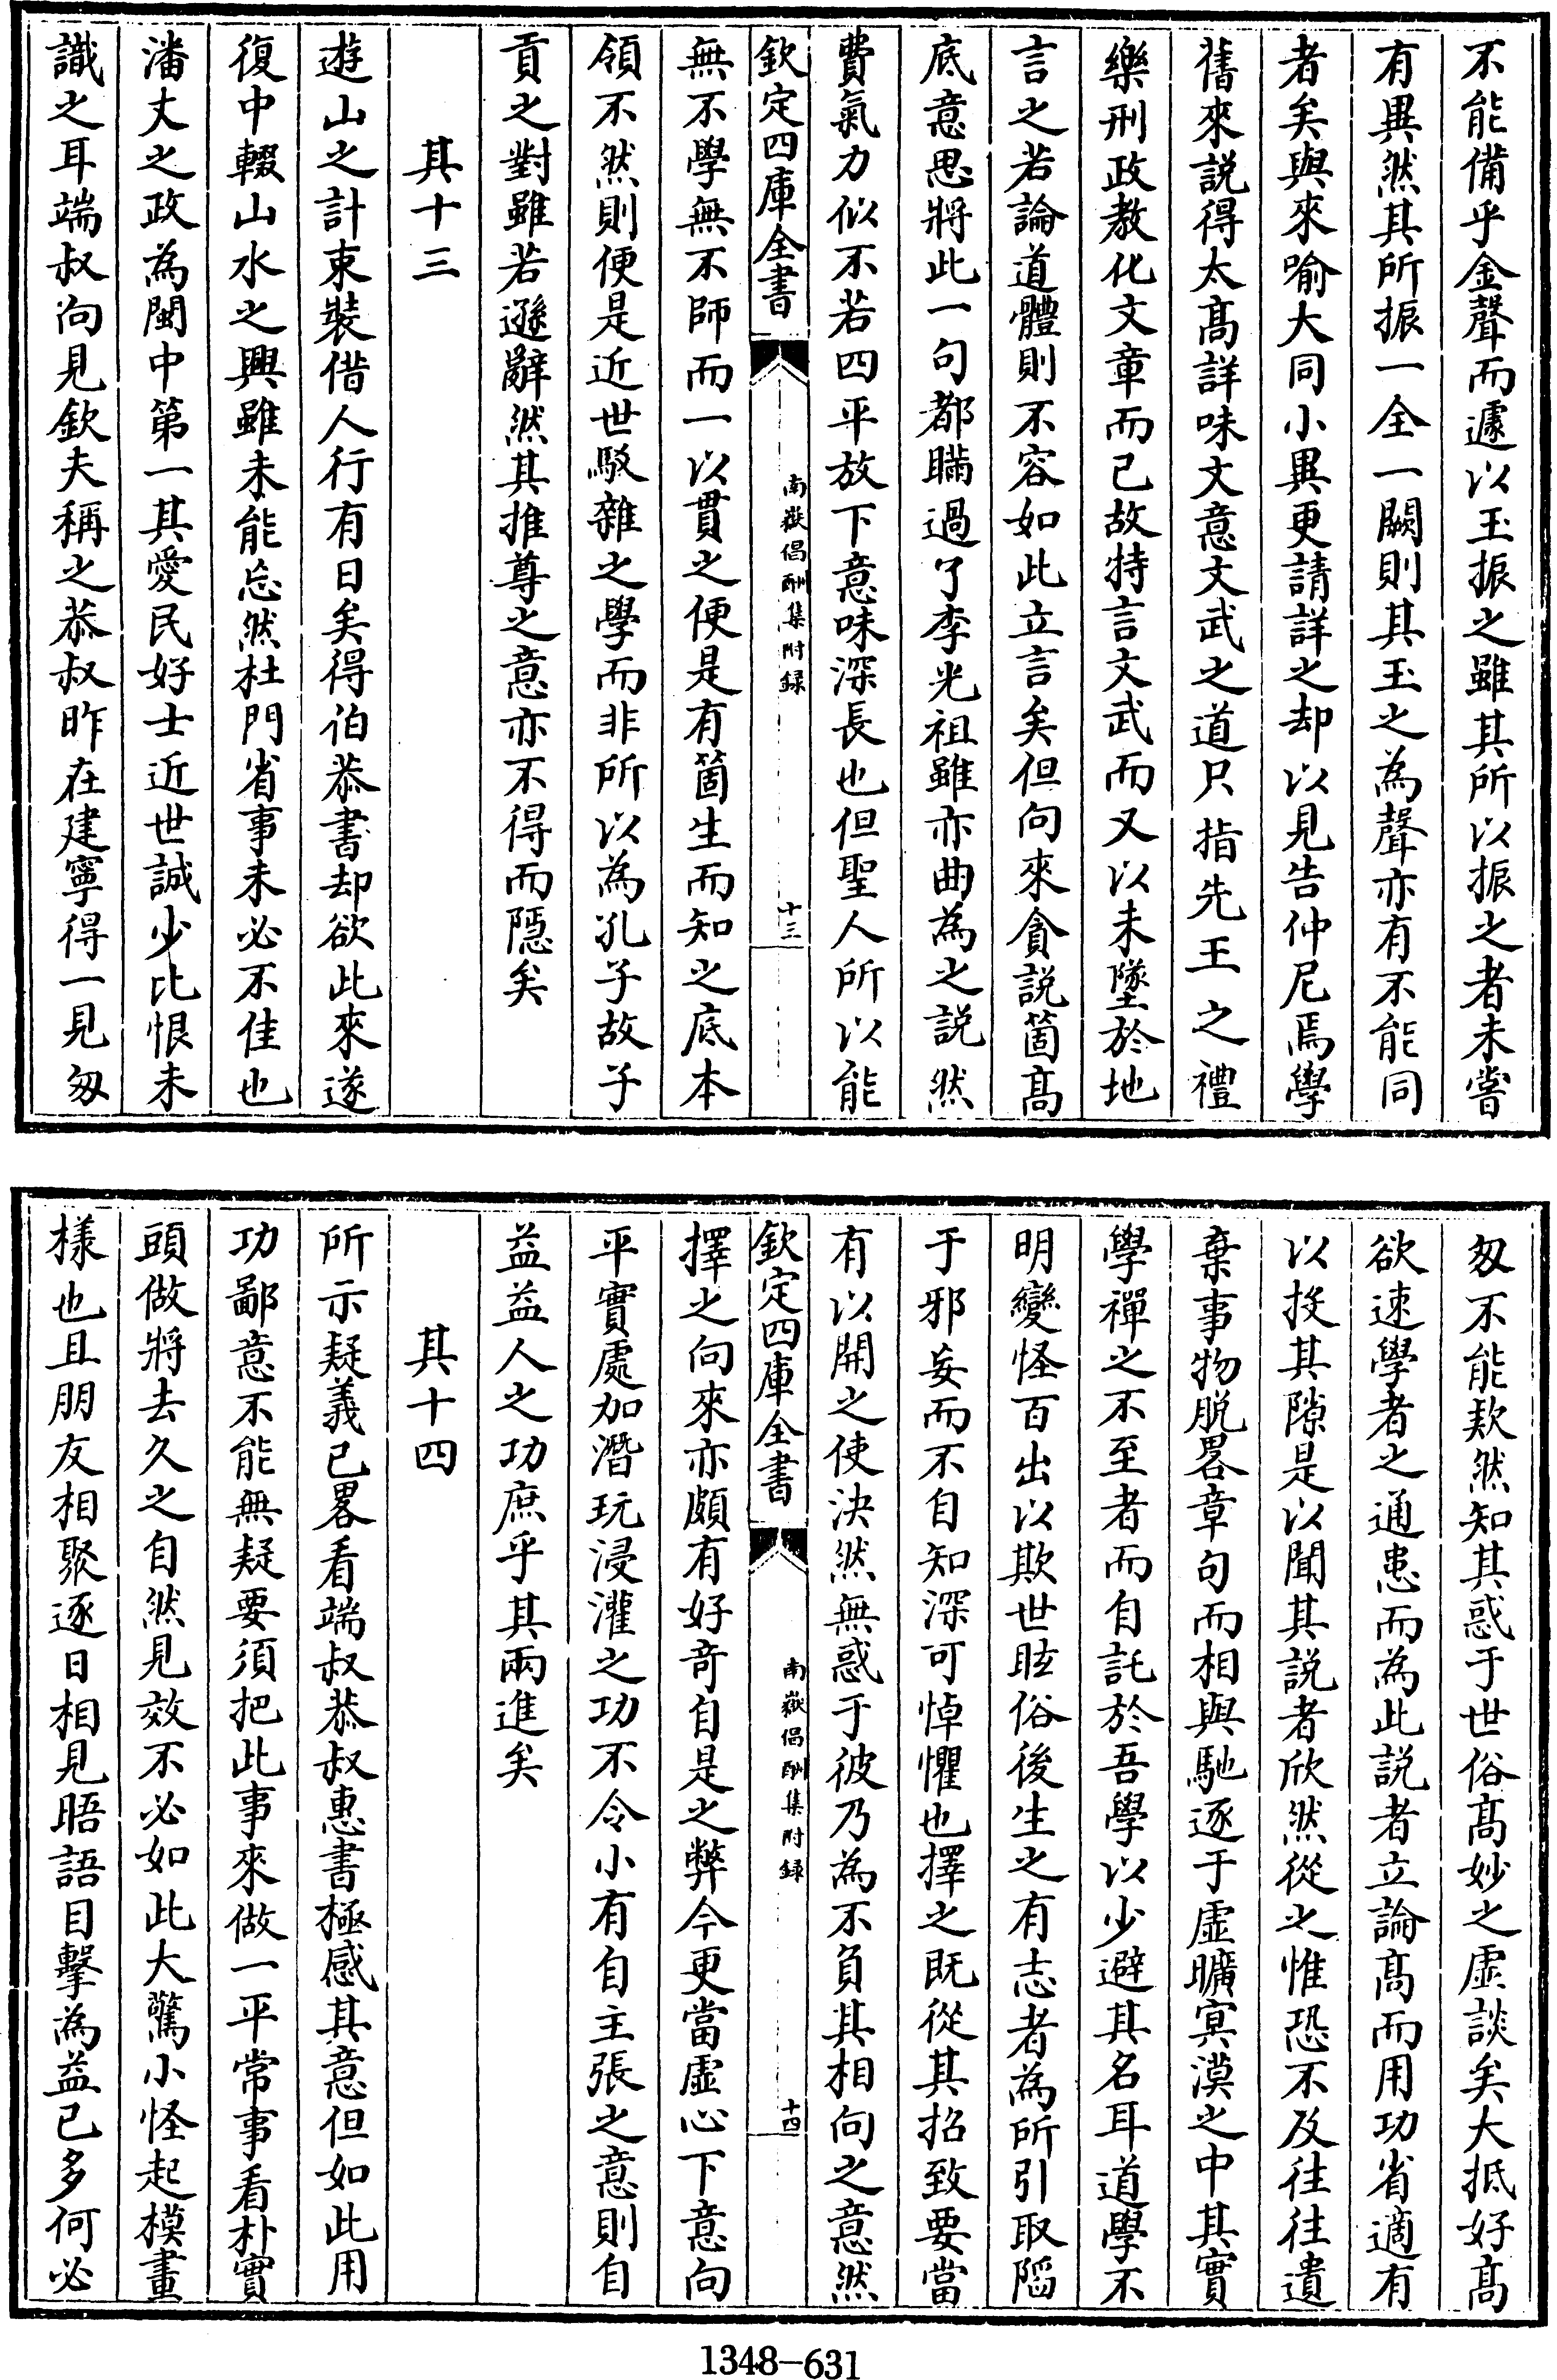 不能備乎金聲而遽以玉振之雖其所以振之者未嘗
有異然其所振一全一闕則其玉之為聲亦有不能同
者矣與來喻大同小異更請詳之却以見告仲尼焉學
舊來説得太髙詳味文意文武之道只指先王之禮
樂刑政敎化文章而已故特言文武而又以未墜於地
言之若論道體則不容如此立言矣但向來貪説箇髙
底意思將此一句都瞞過了李光祖雖亦曲為之説然
費氣力似不若四平放下意味深長也但聖人所以能
欽定四庫全書
南嶽倡酬集附録
十三
無不學無不師而一以貫之便是有箇生而知之底本
領不然則便是近世駁雜之學而非所以為孔子故子
貢之對雖若遜辭然其推尊之意亦不得而隱矣
其十三
遊山之計束裝借人行有日矣得伯恭書却欲此來遂
復中輟山水之興雖未能忘然杜門省事未必不佳也
潘丈之政為閩中第一其愛民好士近世誠少比恨未
識之耳端叔向見欽夫稱之恭叔昨在建寧得一見匆
匆不能欵然知其惑于世俗髙妙之虛談矣大抵好髙
欲速學者之通患而為此説者立論髙而用功省適有
以投其隙是以聞其説者欣然從之惟恐不及往往遺
棄事物脫畧章句而相與馳逐于虛曠㝠漠之中其實
學禪之不至者而自託於吾學以少避其名耳道學不
明變怪百出以欺世眩俗後生之有志者為所引取陷
于邪妄而不自知深可悼懼也擇之既從其招致要當
有以開之使決然無惑于彼乃為不負其相向之意然
欽定四庫全書
南嶽倡酬集附録
十四
擇之向來亦頗有好奇自是之弊今更當虛心下意向
平實處加潛玩浸灌之功不令小有自主張之意則自
益益人之功庶乎其兩進矣
其十四
所示疑義已畧看端叔恭叔惠書極感其意但如此用
功鄙意不能無疑要須把此事來做一平常事看朴實
頭做將去久之自然見效不必如此大驚小怪起模畫
樣也且朋友相聚逐日相見晤語目擊為益已多何必
1348-631